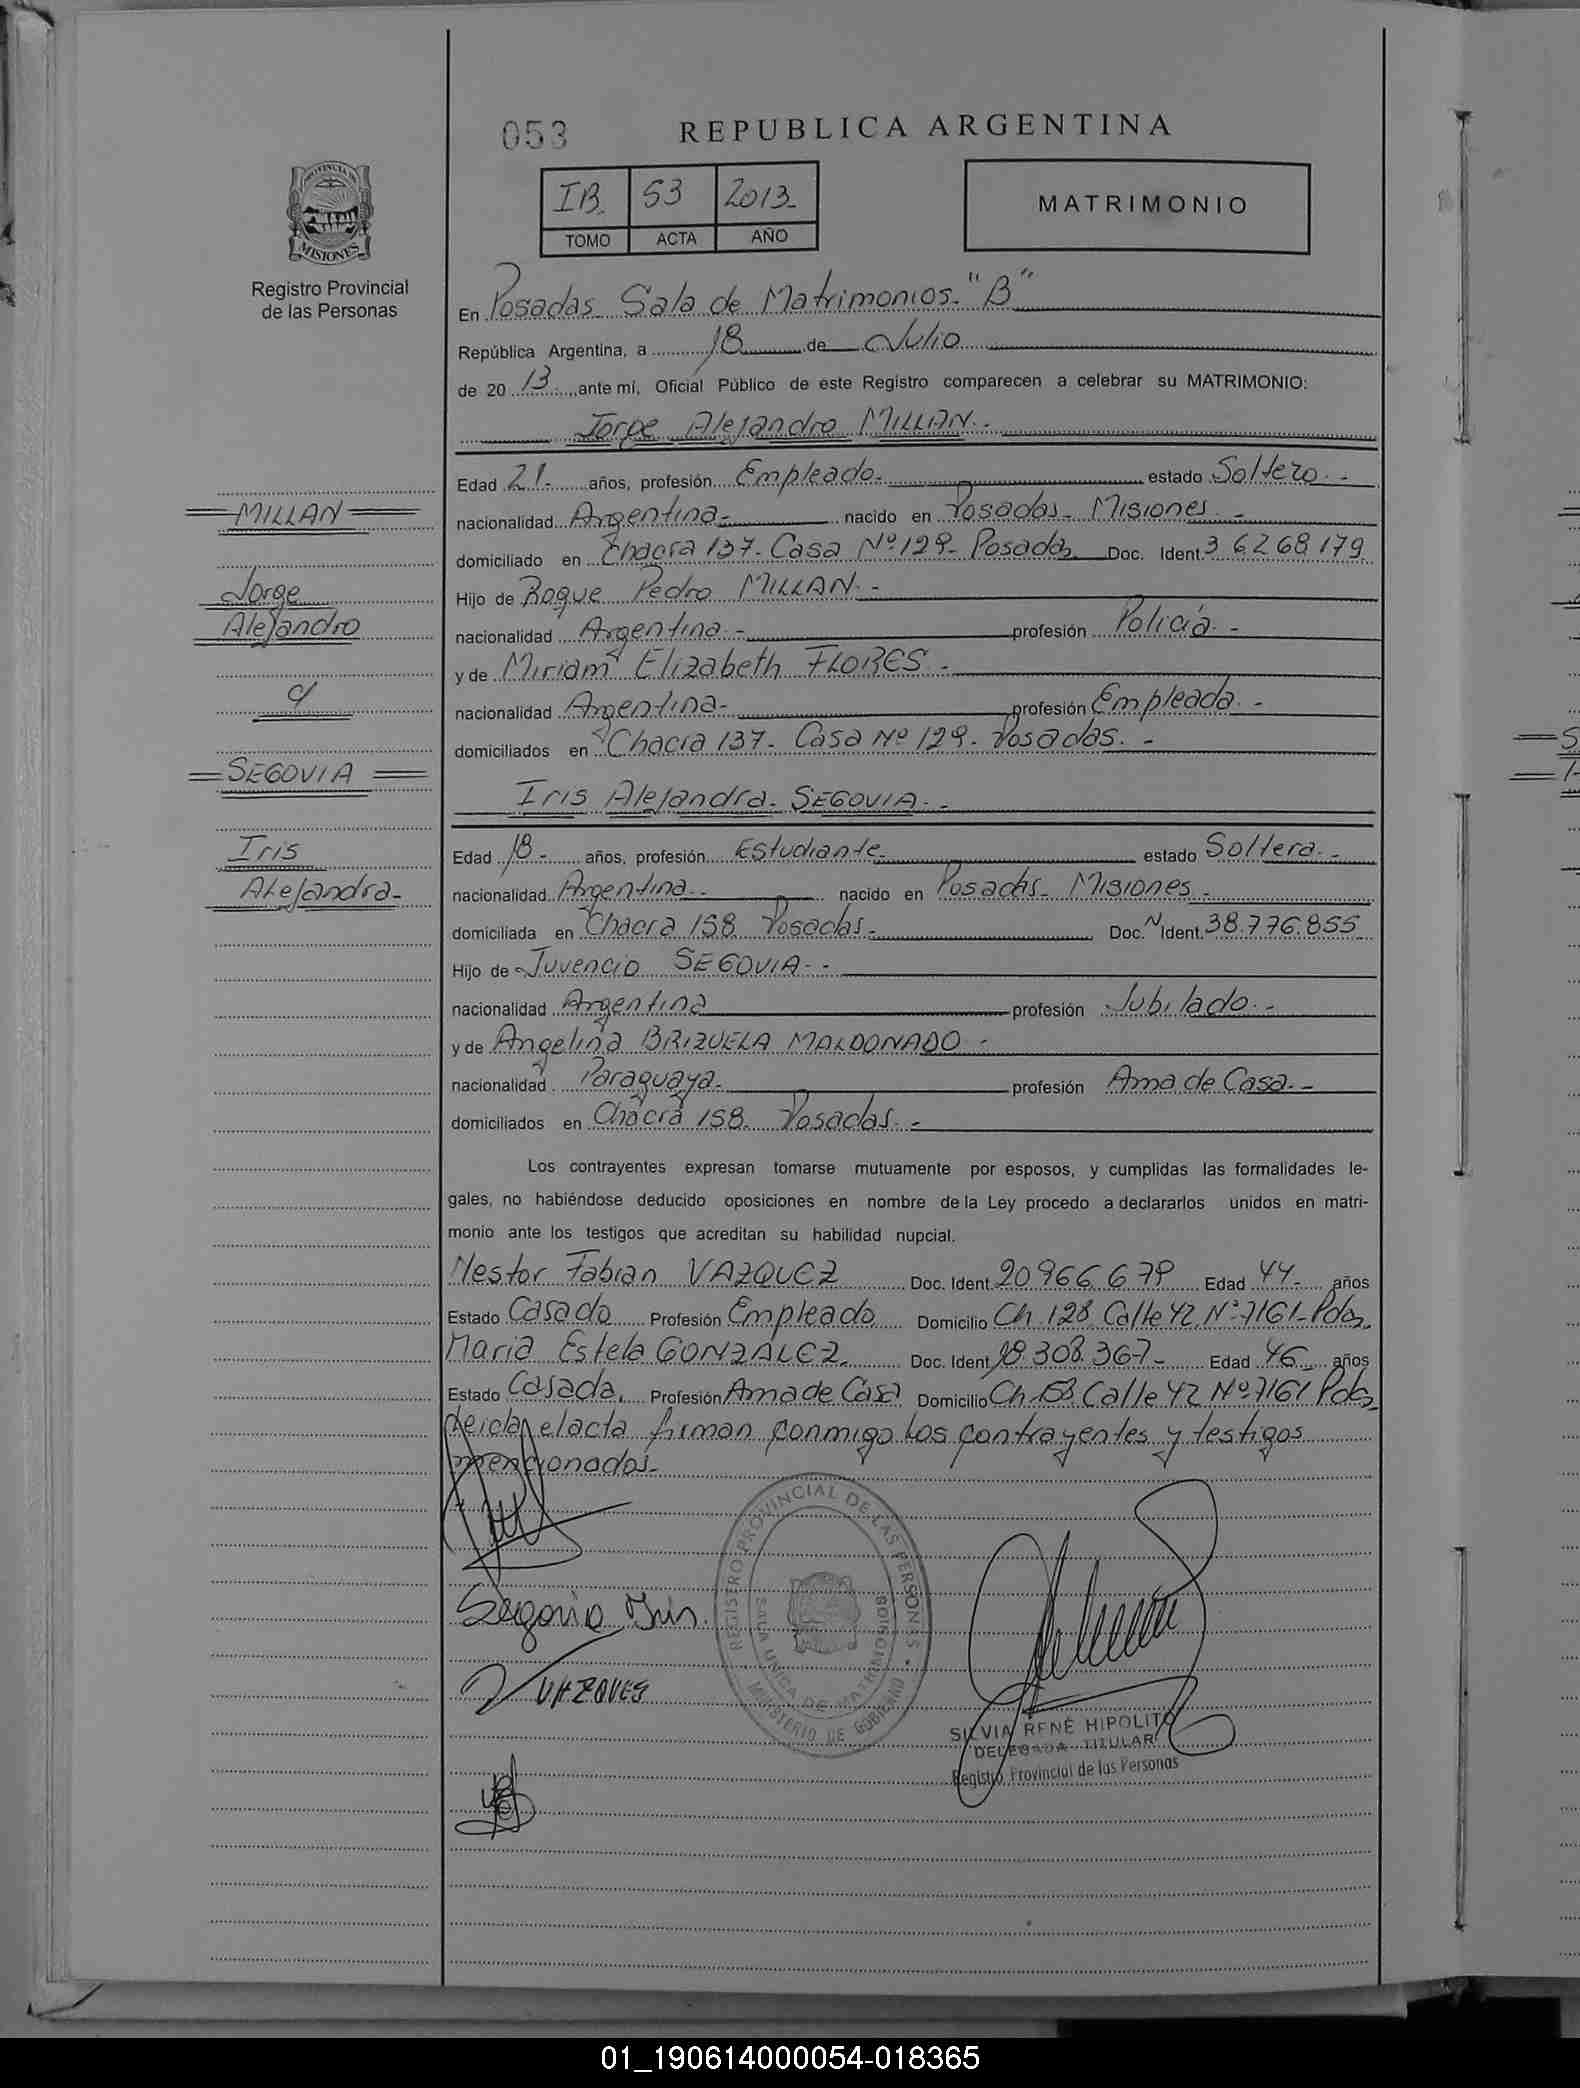 053
REPUBLICA ARGENTINA
IB. 53 2013-
TOMO ACTA AÑO
MATRIMONIO
PROVINCIA DE
MISIONES
Registro Provincial
de las Personas
En Posadas Sala de Matrimonios "B"
República Argentina, a 18 de Julio
de 20 13 ante mí, Oficial Público de este Registro comparecen a celebrar su MATRIMONIO:
Jorge Alejandro MILLAN.-
Edad 21- años, profesión Empleado.- estado Soltero.-
nacionalidad Argentina- nacido en Posadas- Misiones.-
domiciliado en Chacra 137- Casa Nº 129- Posadas Doc. Ident. 36.268.179
Hijo de Roque Pedro MILLAN.-
nacionalidad Argentina.- profesión Policía.-
y de Miriam Elizabeth FLORES.-
nacionalidad Argentina- profesión Empleada.-
domiciliados en Chacra 137- Casa Nº 129- Posadas.-
Iris Alejandra SEGOVIA.-
Edad 18- años, profesión Estudiante- estado Soltera.-
nacionalidad Argentina.- nacido en Posadas- Misiones.-
domiciliada en Chacra 158 Posadas.- Doc. Ident. 38.776.855
Hijo de Juvencio SEGOVIA.-
nacionalidad Argentina profesión Jubilado.-
y de Angelina BRIZUELA MALDONADO.-
nacionalidad Paraguaya- profesión Ama de Casa.-
domiciliados en Chacra 158 Posadas.-
Los contrayentes expresan tomarse mutuamente por esposos, y cumplidas las formalidades le-
gales, no habiéndose deducido oposiciones en nombre de la Ley procedo a declararlos unidos en matri-
monio ante los testigos que acreditan su habilidad nupcial.
Nestor Fabian VAZQUEZ Doc. Ident. 20.966.679 Edad 44- años
Estado Casado Profesión Empleado Domicilio Ch. 128 Calle 42 Nº 7161- Pdas.
Maria Estela GONZALEZ. Doc. Ident. 18.308.367- Edad 46- años
Estado Casada. Profesión Ama de Casa Domicilio Ch. Calle 42 Nº 7161 Pdas.
Leida el acta firman conmigo los contrayentes y testigos
mencionados-
Segovia Iris.
VAZQUEZ
REGISTRO PROVINCIAL DE LAS PERSONAS
SALA UNICA DE MATRIMONIOS
MINISTERIO DE GOBIERNO
SILVIA RENÉ HIPOLITO
DELEGADA TITULAR
Registro Provincial de las Personas
MILLAN
Jorge
Alejandro
c/
SEGOVIA
Iris
Alejandra-
01_190614000054-018365